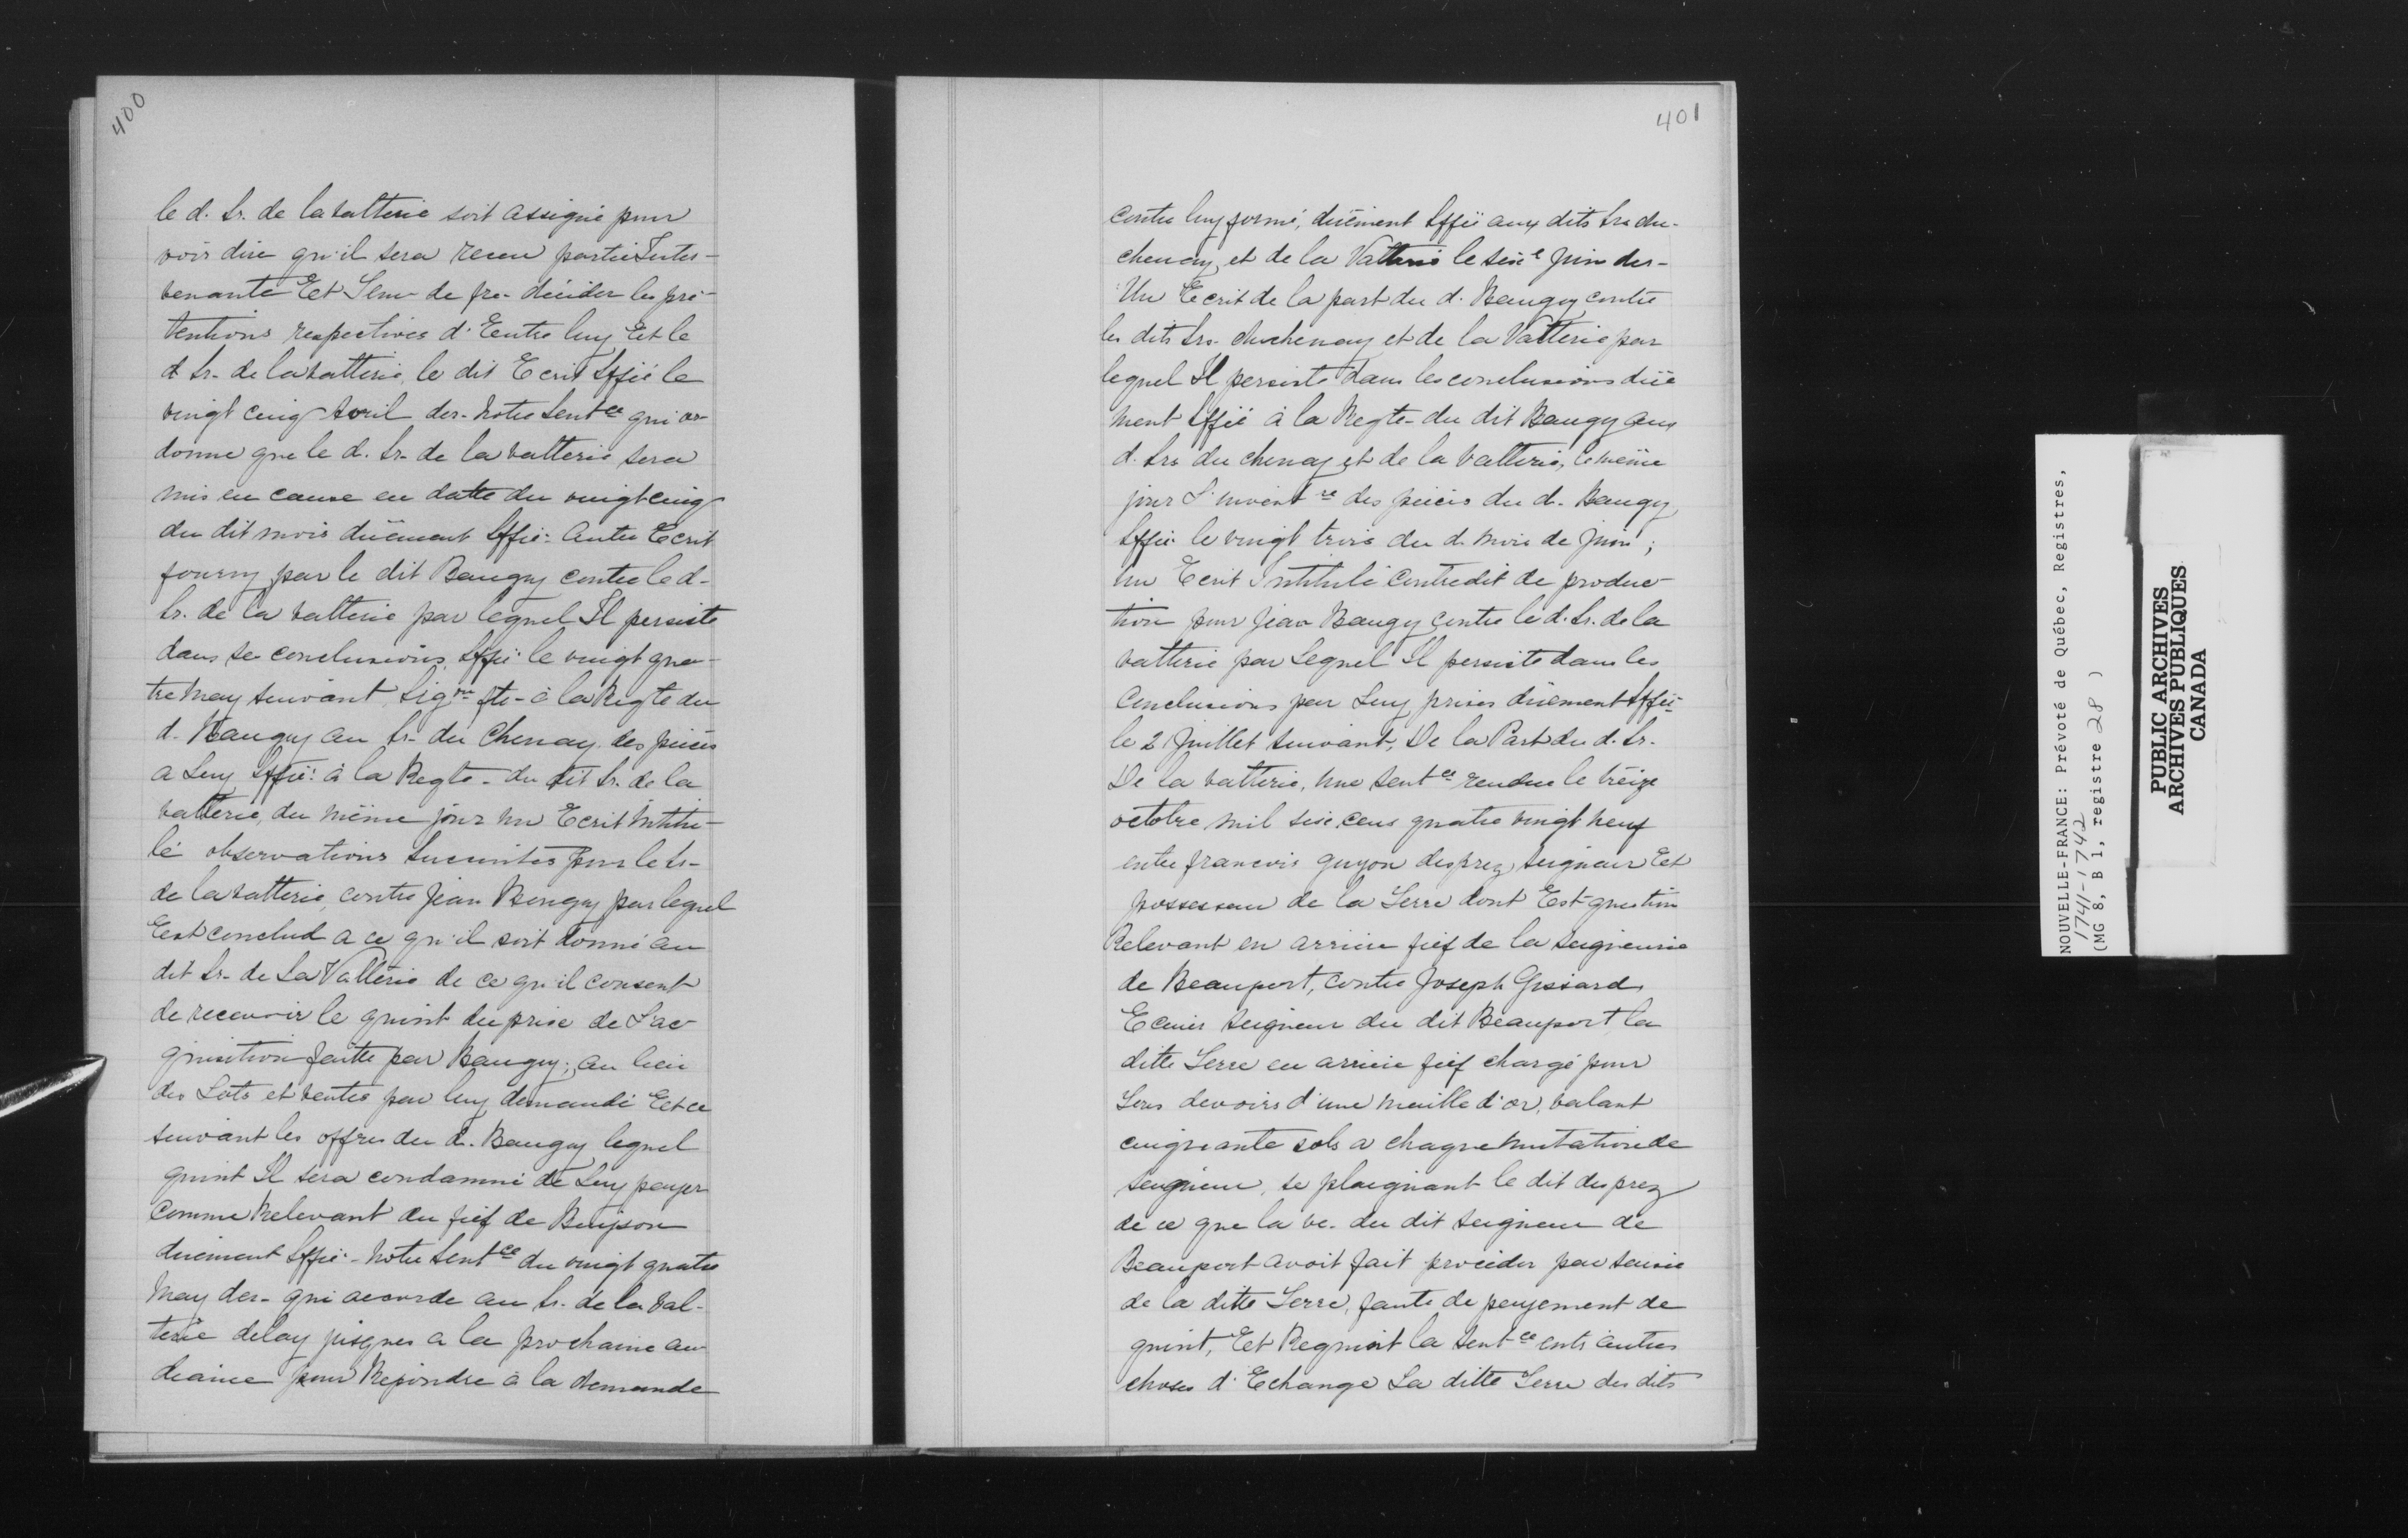 400
le d. Sr. de la Valterie soit assigné pour
voir dire qu'il sera receu partie Inter-
venante Et Tenu de fre. décider les pré-
tentions respectives d'Eentre luy Eet le
d Sr. de la Valterie, le dit Ecrit Sffié le
vingt cinq avril der. Notre Sentce qui or
donne que le d. Sr. de la Valterie sera
mis en cause en datte du vingt cinq
du dit mois düement Sffié: Autre Ecrit
fourny par le dit Baugy contre le d.
Sr. de la Valterie par lequel Il persiste
dans se conclusions, Sffié le vingt qua-
tre may suivant, Sigon fte- à la Reqte du
d. Baugy au Sr. du Chenay des pieces
a Luy Sffié: à la Reqte- du dit Sr. de la
Valterie, du même jour un Ecrit Intitu-
lé observations Succintes pour le Sr-
de la Valterie, contre Jean Baugy par lequel
Eest conclud a ce qu'il soit donné au
dit Sr. de La Vallterie de ce qu'il consent
de recevoir le quint du prise de L'ac
quisition faitte par Baugy; au lieu
des Lots et ventes par luy demandé Eet ce
suivant les offres du d. Baugy lequel
quint Il sera condamné de Luy payer
comme Relevant du fief de Buisson
düement Sffié- Notre Sentce du vingt quatre
May der- qui accorde au Sr. de la Val-
terie delay jusques a la prochaine au
diance pour Repondre à la demande
401
contre luy formé, düement Sffié aux dits Srs du-
chenay, et de la Valterie le seize Juin der-
Un Ecrit de la part du d. Baugy contre
les dits Srs. duchenay et de la Valterie par
lequel Il persiste dans les conclusions düe
ment Sffié à la Reqte- du dit Baugy aux
d. Srs du chenay et de la Valterie, le même
jour L'invent re des pieces du d. Baugy
Sffié le vingt trois du d. mois de Juin;
Un Ecrit Intitulé contredit de produc-
tion pour Jean Baugy contre le d. Sr. de la
Valterie par Lequel Il persiste dans les
Conclusions par Luy prises düement Sffié-
le 21 Juillet suivant, De la Part du d. Sr.
De la Valterie, Une Sentce rendue le treize
octobre mil seise cens quatre vingt neuf
entre francois guyon desprez, seigneur Eet
possesseur de la Terre dont Est question
Relevant en arriere fief de la seigneurie
de Beauport, contre Joseph Gissard
Ecuier seigneur du dit Beauport, la
ditte Terre en arriere fief chargé pour
Tous devoirs d'une maille d'or, valant
cinquante sols a chaque mutation de
seigneur, se plaignant le dit desprez
de ce que la ve. du dit seigneur de
Beauport avoit fait procéder par saisie
de la ditte Terre, faute de payement de
quint, Eet Requiert la Sentce entr'autres
choses d'Echange La ditte Terre des dits
NOUVELLE-FRANCE: Prévoté de Québec, Registres,
1741-1742
(MG 8, B 1, registre 28 )
PUBLIC ARCHIVES
ARCHIVES PUBLIQUES
CANADA